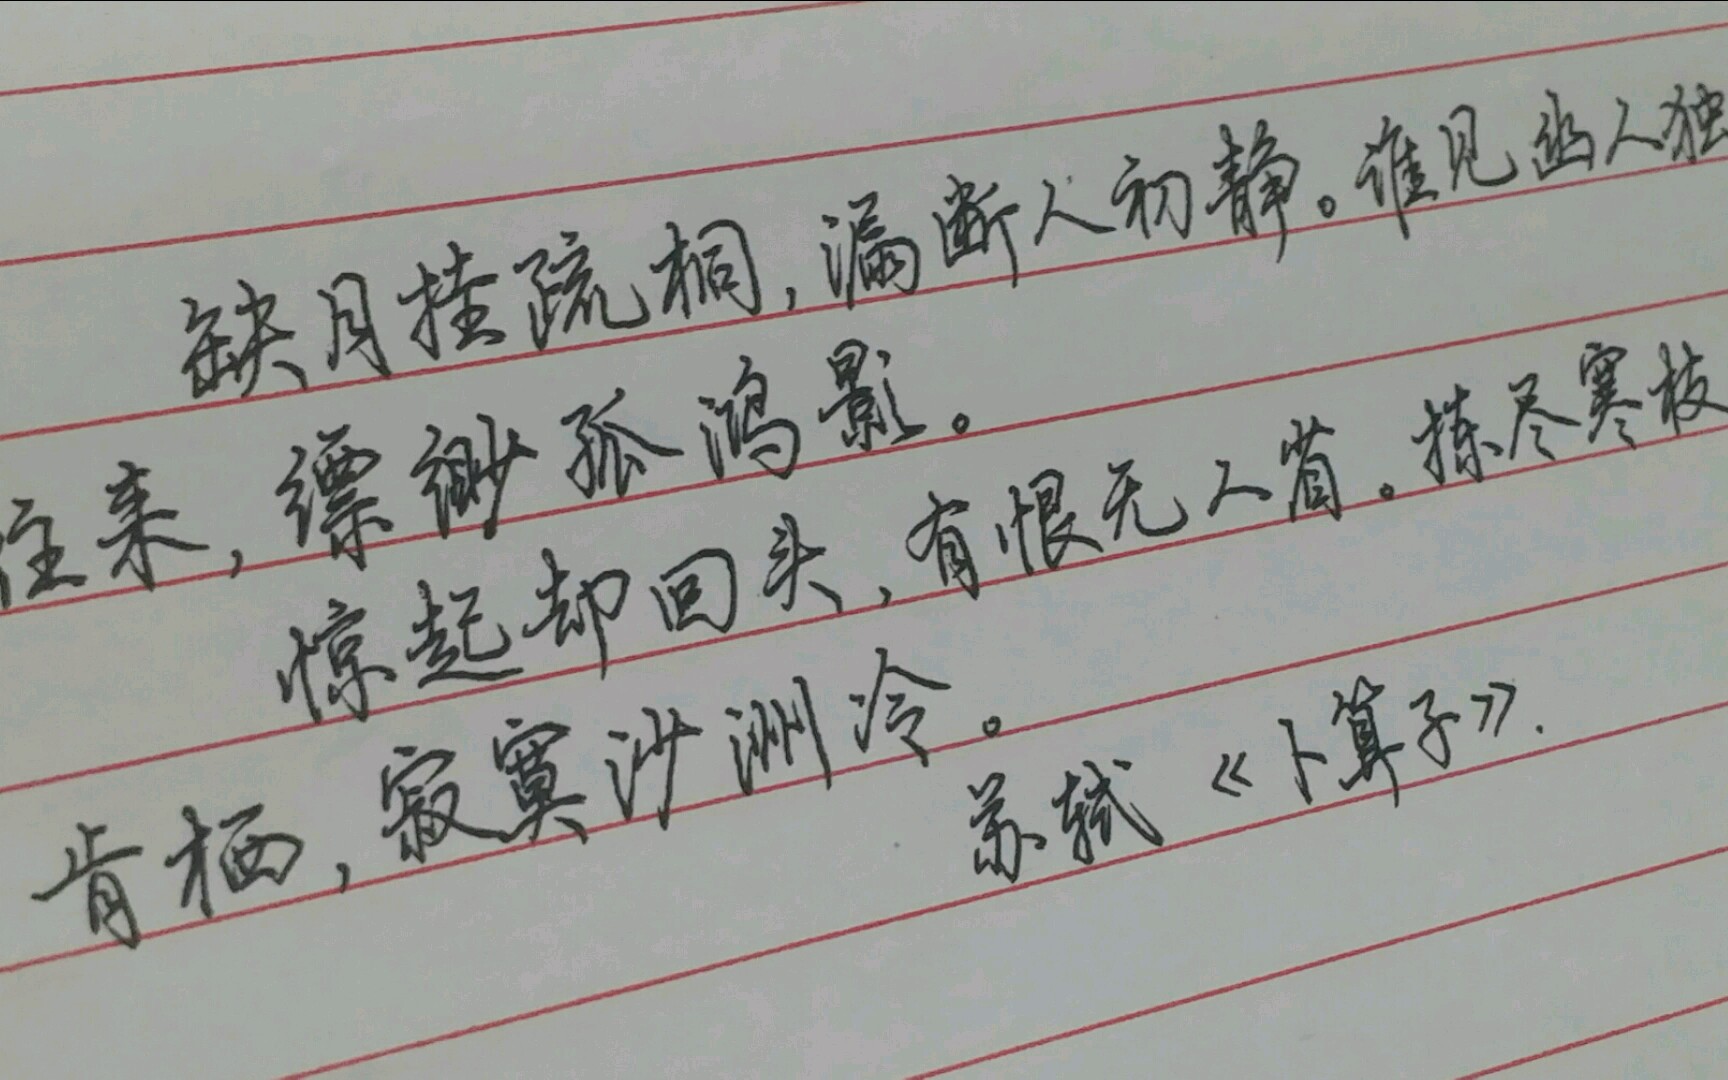 缺月挂疏桐，漏断人初静。谁见幽人独
往来，缥缈孤鸿影。
惊起却回头，有恨无人省。拣尽寒枝
肯栖，寂寞沙洲冷。
苏轼《卜算子》.